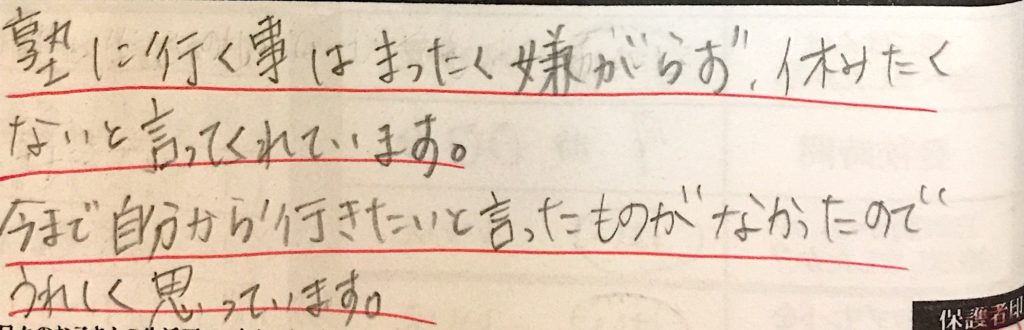 塾に行く事はまったく嫌がらず、休みたく
ないと言ってくれています。
今まで自分から行きたいと言ったものがなかったので
うれしく思っています。
保護者印